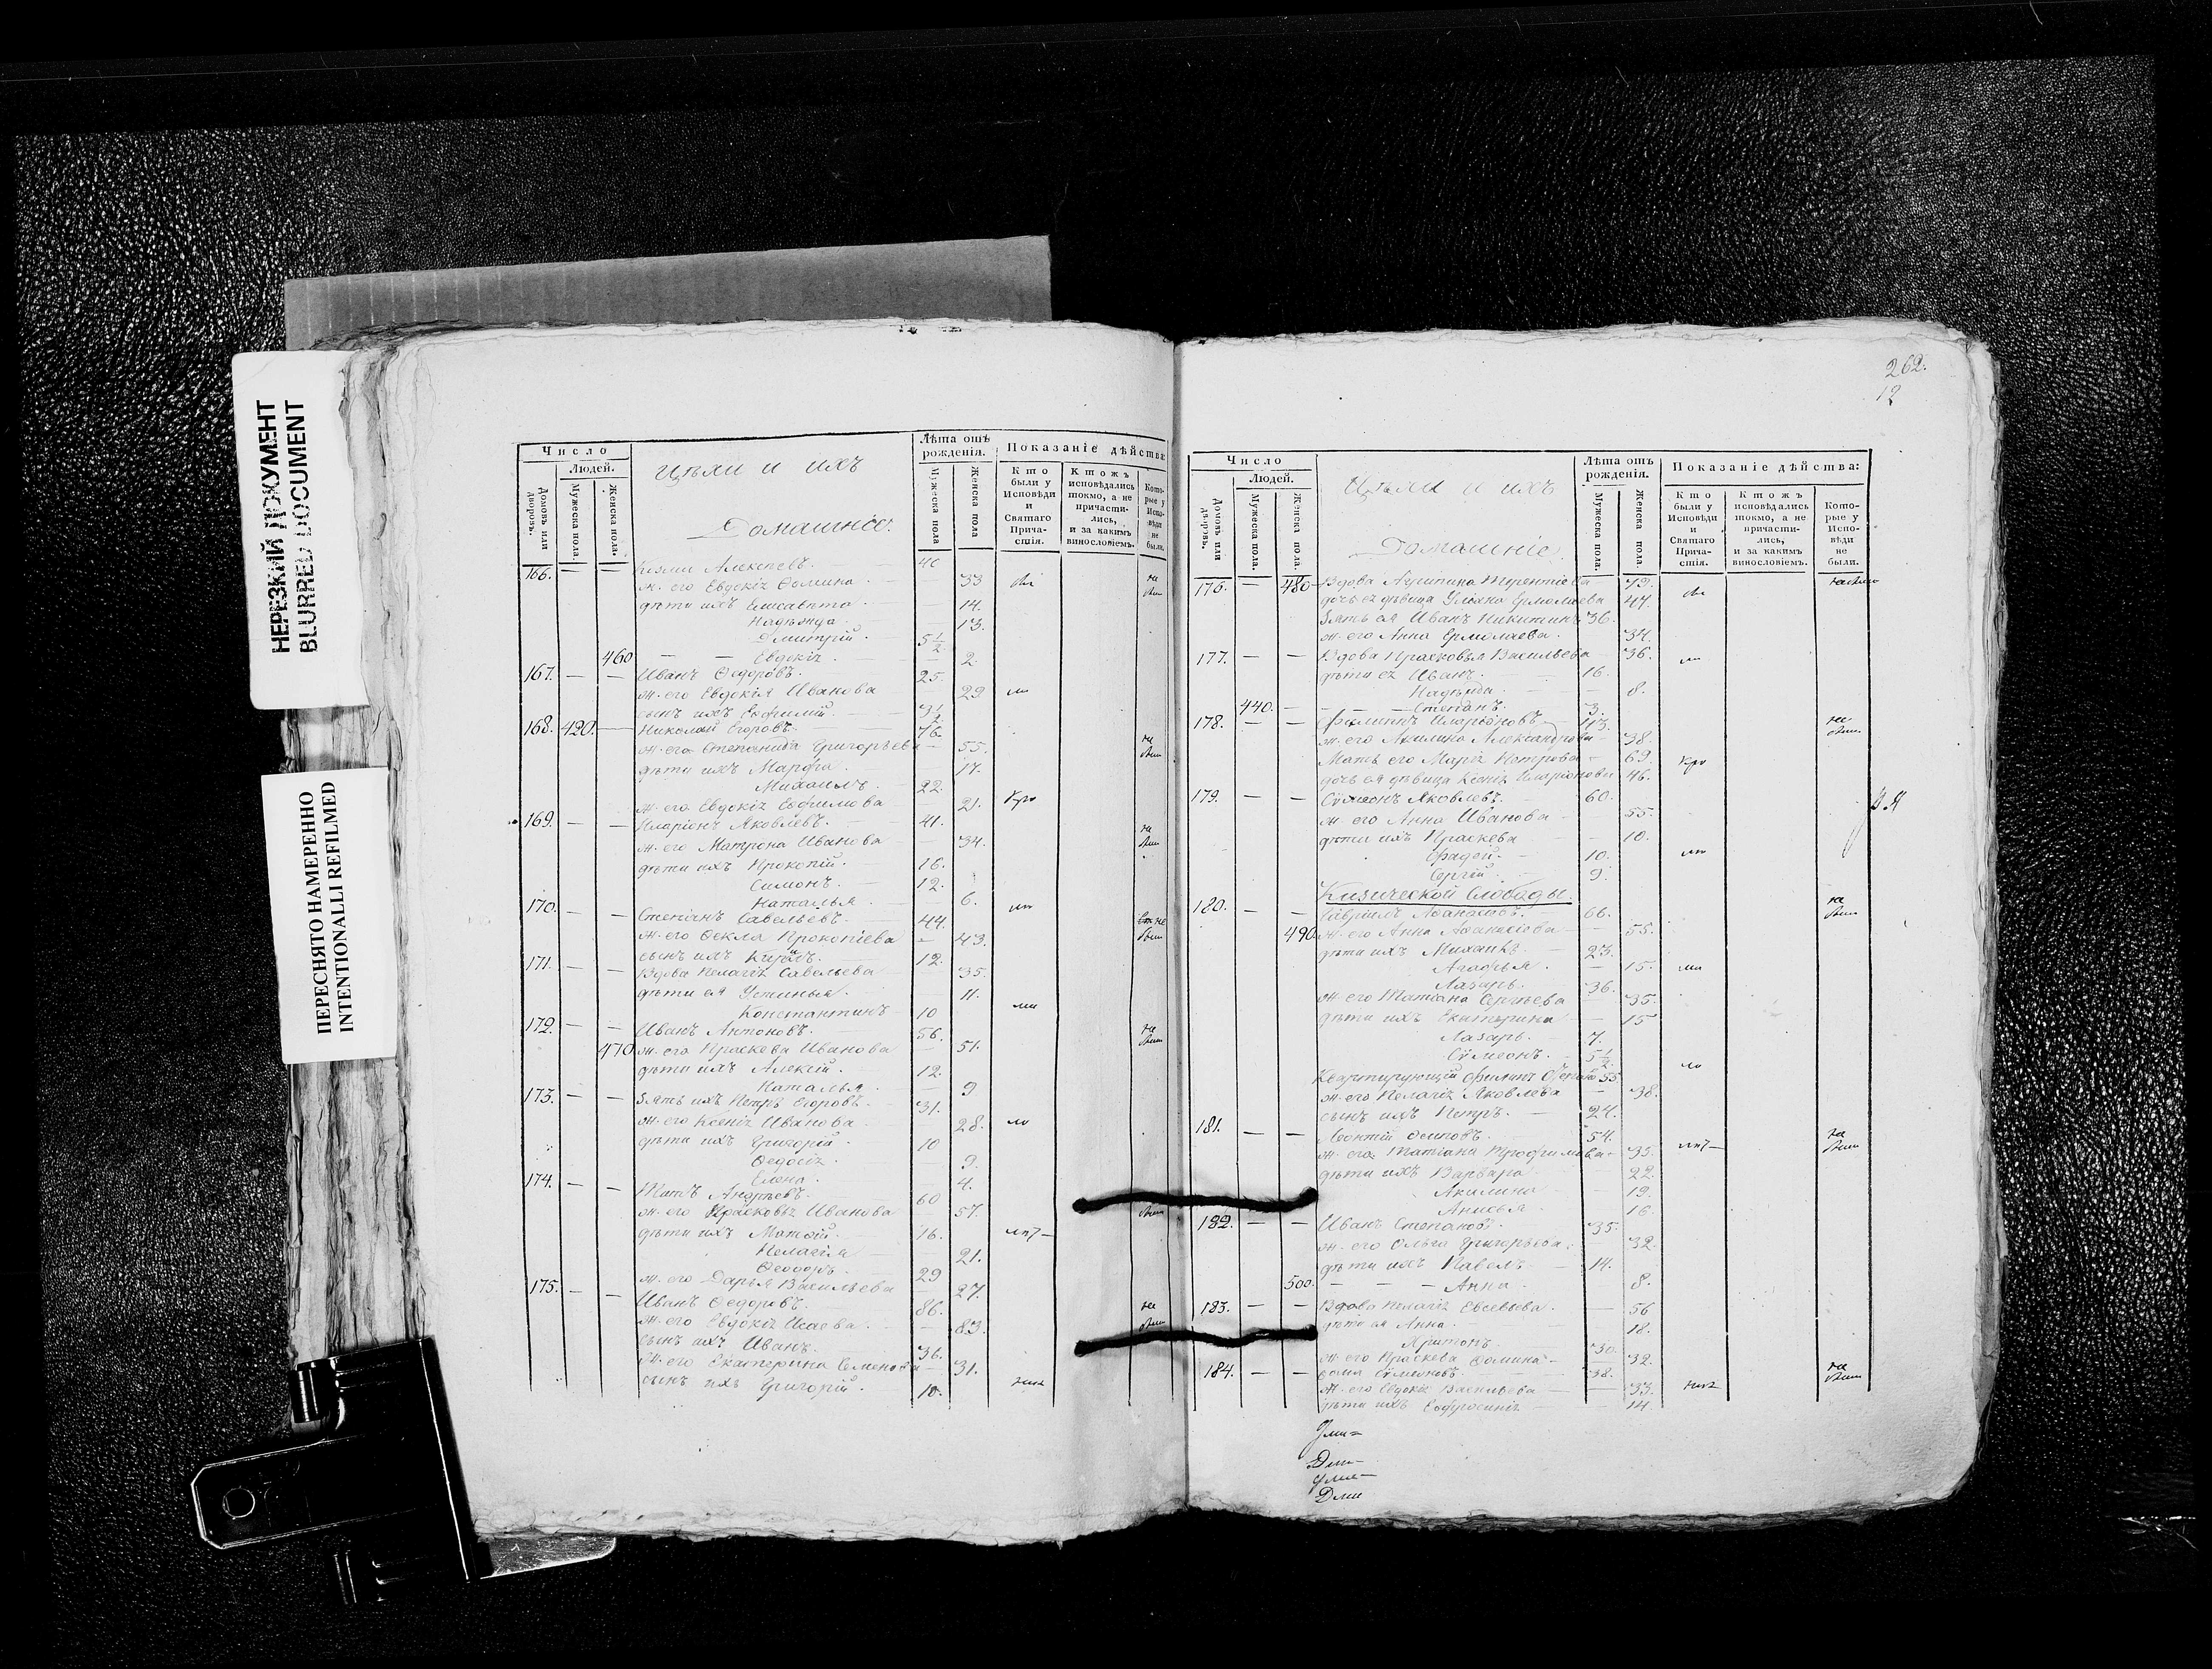 НЕРЕЗКИЙ ДОКУМЕНТ
BLURRED DOCUMENT
ПЕРЕСНЯТО НАМЕРЕННО
INTENTIONALLI REFILMED
Число
Людей.
Домовъ или дворовъ.
Мужеска пола.
Женска пола.
и ихъ
Домашніе.
Лѣта отъ рожденія.
Мужеска пола
Женска пола
Показаніе дѣйства:
Кто были у Исповѣди и Святаго Причастія.
Ктожъ исповѣдались токмо, а не причастились, и за какимъ винословіемъ.
Которые у Исповѣди не были.
166. — — Алексѣевъ.
ж. его Евдокіѧ Фомина 33
дѣти ихъ Елисавѣта 14.
Надежда 13.
Дмитрій. 5½
460 — — Евдокіѧ. — 2.
167. — — Иванъ Ѳедоровъ. 25.
ж. его Евдокія Иванова 29
сынъ ихъ Евфимій. 3½
168. 420. — Николай Егоровъ. 76.
ж. его Степанида Григорьева — 55.
дѣти ихъ Марфа. — 17.
Михаилъ. 22.
ж. его Евдокіѧ Евфимова 21.
169. — — Иларіонъ Яковлевъ. 41.
ж. его Матрона Иванова 34.
дѣти ихъ Прокопій. 16.
Симонъ. 12.
Наталья. 6.
170. — — Степанъ Савельевъ. 44.
ж. его Ѳекла Прокопіева — 43.
сынъ ихъ 12.
171. — — Вдова Пелагіѧ Савельева 35.
дѣти ея Устинья. 11.
Константинъ 10
172. — — Иванъ Антоновъ. 56.
470 ж. его Праскева Иванова 51.
дѣти ихъ Алексій. 12.
Наталья. — 9
173. — — Зять ихъ Петръ Егоровъ. 31.
ж. его Ксеніѧ Иванова 28.
дѣти ихъ Григорій. 10
Ѳедосіѧ. 9.
Елена. 4.
174. — — Андреевъ. 60
ж. его Прасковьѧ Иванова 57.
дѣти ихъ Матвій. 16.
Пелагія 21.
Ѳеодоръ. 29
ж. его Дарья Васильева 27.
175. — — Иванъ Ѳедоровъ. 86.
ж. его Евдокіѧ Исаева. 83.
сынъ ихъ Иванъ. 36.
ж. его Екатерина Семенова — 31.
сынъ ихъ Григорій. 10.
262.
12
Число
Людей.
Домовъ или дворовъ.
Мужеска пола.
Женска пола.
и ихъ
Домашніе
Лѣта отъ рожденія.
Мужеска пола.
Женска пола.
Показаніе дѣйства:
Кто были у Исповѣди и Святаго Причастія.
Ктожъ исповѣдались токмо, а не причастились, и за какимъ винословіемъ.
Которые у Исповѣди не были.
176. — 480 Вдова Агрипина Терентіева 73.
дочь еѧ дѣвица Ульяна Ермолаева 44.
Зять ея Иванъ Никитинъ 36.
ж. его Анна Ермолаева. 34.
177. — — Вдова Прасковья Васильева 36.
дѣти еѧ Иванъ. 16.
Надежда. — 8.
440. — — Степанъ. 3.
178. — — Филиппъ Иларіоновъ 43.
ж. его Акилина Александрова 38.
Мать его Маріѧ Петрова 69.
дочь ея дѣвица Ксеніѧ Иларіонова 46.
179. — — Сѵмеонъ Яковлевъ. 60.
ж. его Анна Иванова 55.
дѣти ихъ Праскева — 10.
Фадей. 10.
Сергій. 9.
Кизической Слободы.
180. — — Гавріилъ Аѳанасіевъ. 66.
490 ж. его Анна Аѳанасіева 55.
дѣти ихъ Михаилъ. 23.
Агафья. — 15.
Лазарь. 36.
ж. его Татіана Сергѣева 35.
дѣти ихъ Екатерина — 15
Лазарь. 7.
Сѵмеонъ. 5½
Квартирующій Филипъ 55
ж. его Пелагіѧ Яковлева — 38.
сынъ ихъ Петръ. 24.
181. — — Леонтій Осиповъ. 54.
ж. его Татіана Трофимова 35.
дѣти ихъ Варвара 22.
Акилина 19.
Анисья. 16.
182. — — Иванъ Степановъ. 35.
ж. его Ольга Григорьева 32.
дѣти ихъ Павелъ 14.
500. — — — Анна. 8.
183. — — Вдова Пелагіѧ Евсевьева. — 56
дѣти ея Анна. 18.
Харитонъ. 30.
ж. его Праскева Фомина 32.
184. — — Фома Сѵмеоновъ. 38.
ж. его Евдокіѧ Васильева 33.
дѣти ихъ Евфросиніѧ 14.